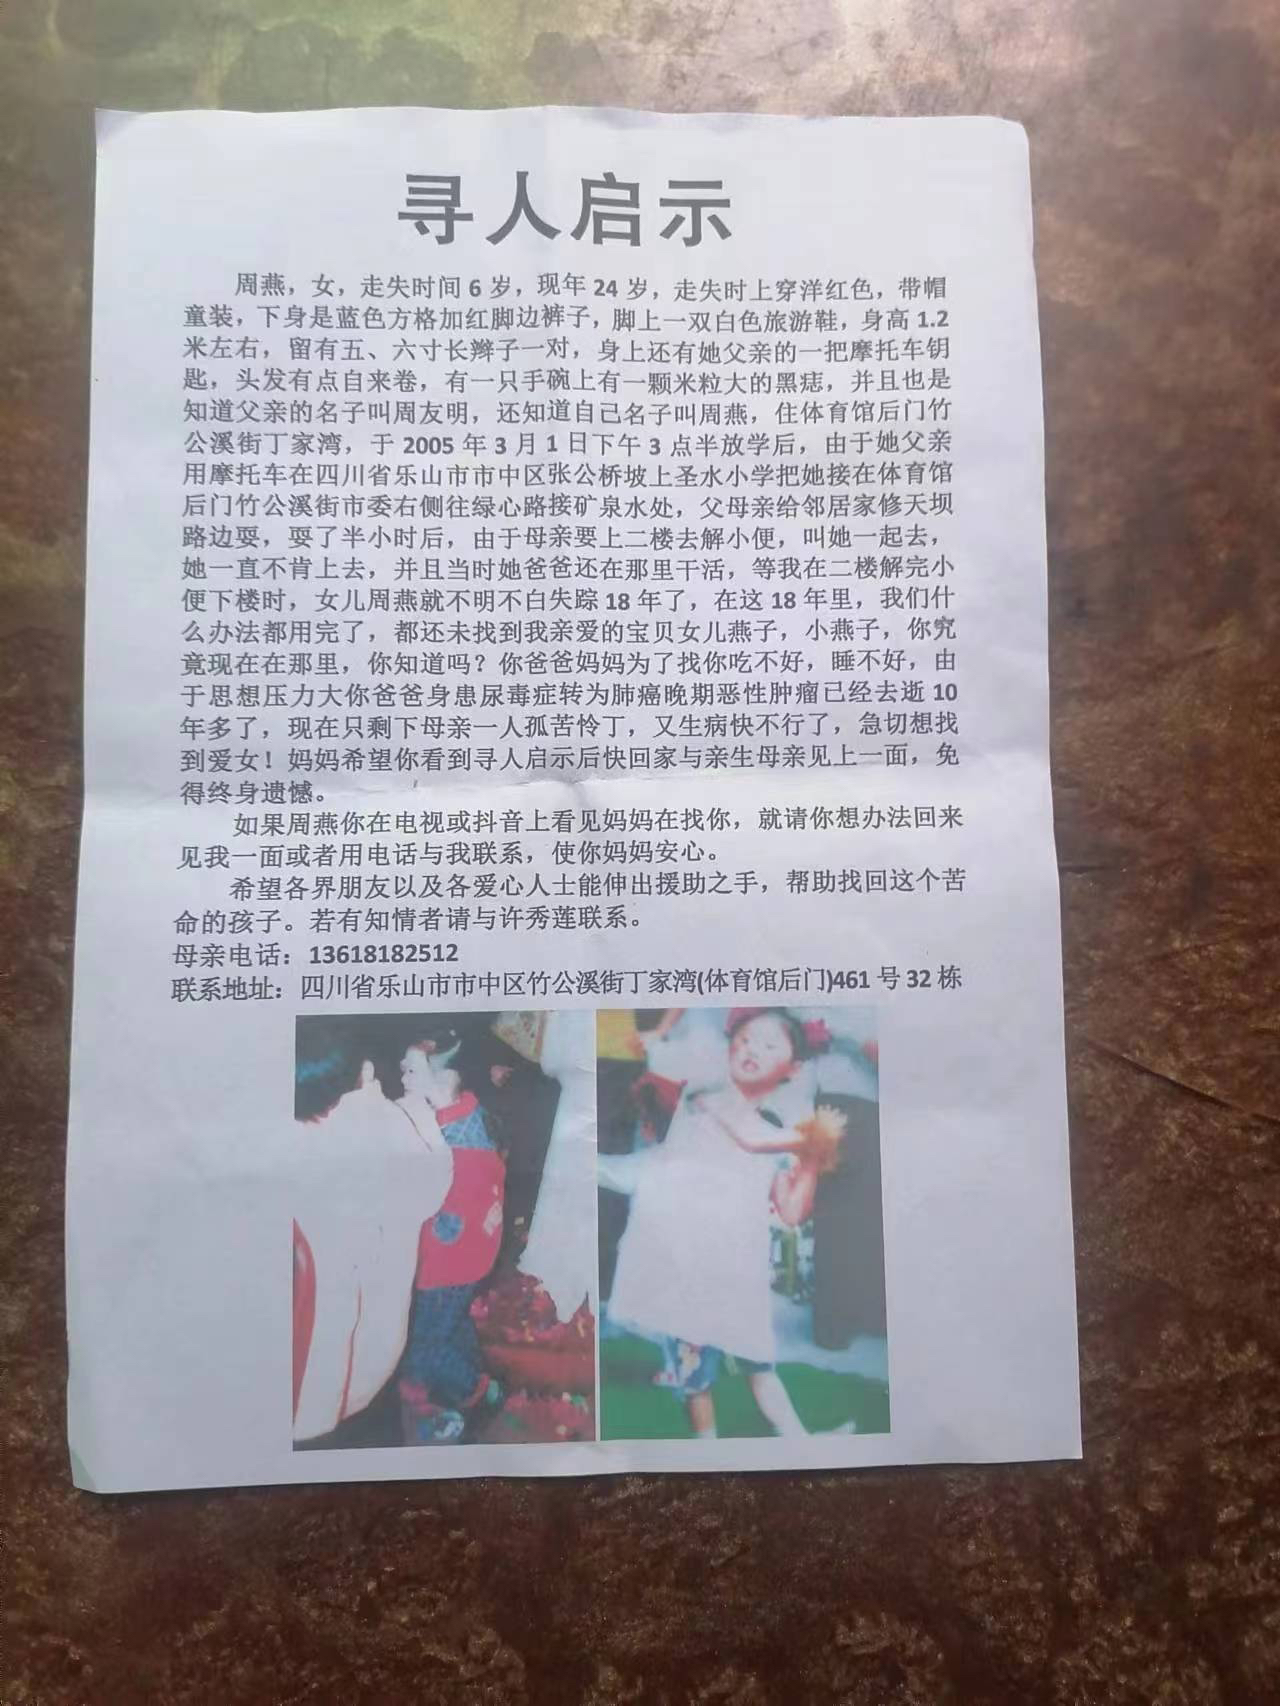 寻人启示
周燕，女，走失时间 6 岁，现年 24 岁，走失时上穿洋红色，带帽
童装，下身是蓝色方格加红脚边裤子，脚上一双白色旅游鞋，身高 1.2
米左右，留有五、六寸长辫子一对，身上还有她父亲的一把摩托车钥
匙，头发有点自来卷，有一只手碗上有一颗米粒大的黑痣，并且也是
知道父亲的名子叫周友明，还知道自己名子叫周燕，住体育馆后门竹
公溪街丁家湾，于 2005 年 3 月 1 日下午 3 点半放学后，由于她父亲
用摩托车在四川省乐山市市中区张公桥坡上圣水小学把她接在体育馆
后门竹公溪街市委右侧往绿心路接矿泉水处，父母亲给邻居家修天坝
路边耍，耍了半小时后，由于母亲要上二楼去解小便，叫她一起去，
她一直不肯上去，并且当时她爸爸还在那里干活，等我在二楼解完小
便下楼时，女儿周燕就不明不白失踪 18 年了，在这 18 年里，我们什
么办法都用完了，都还未找到我亲爱的宝贝女儿燕子，小燕子，你究
竟现在在那里，你知道吗？你爸爸妈妈为了找你吃不好，睡不好，由
于思想压力大你爸爸身患尿毒症转为肺癌晚期恶性肿瘤已经去逝 10
年多了，现在只剩下母亲一人孤苦怜丁，又生病快不行了，急切想找
到爱女！妈妈希望你看到寻人启示后快回家与亲生母亲见上一面，免
得终身遗憾。
如果周燕你在电视或抖音上看见妈妈在找你，就请你想办法回来
见我一面或者用电话与我联系，使你妈妈安心。
希望各界朋友以及各爱心人士能伸出援助之手，帮助找回这个苦
命的孩子。若有知情者请与许秀莲联系。
母亲电话：13618182512
联系地址：四川省乐山市市中区竹公溪街丁家湾(体育馆后门)461 号 32 栋